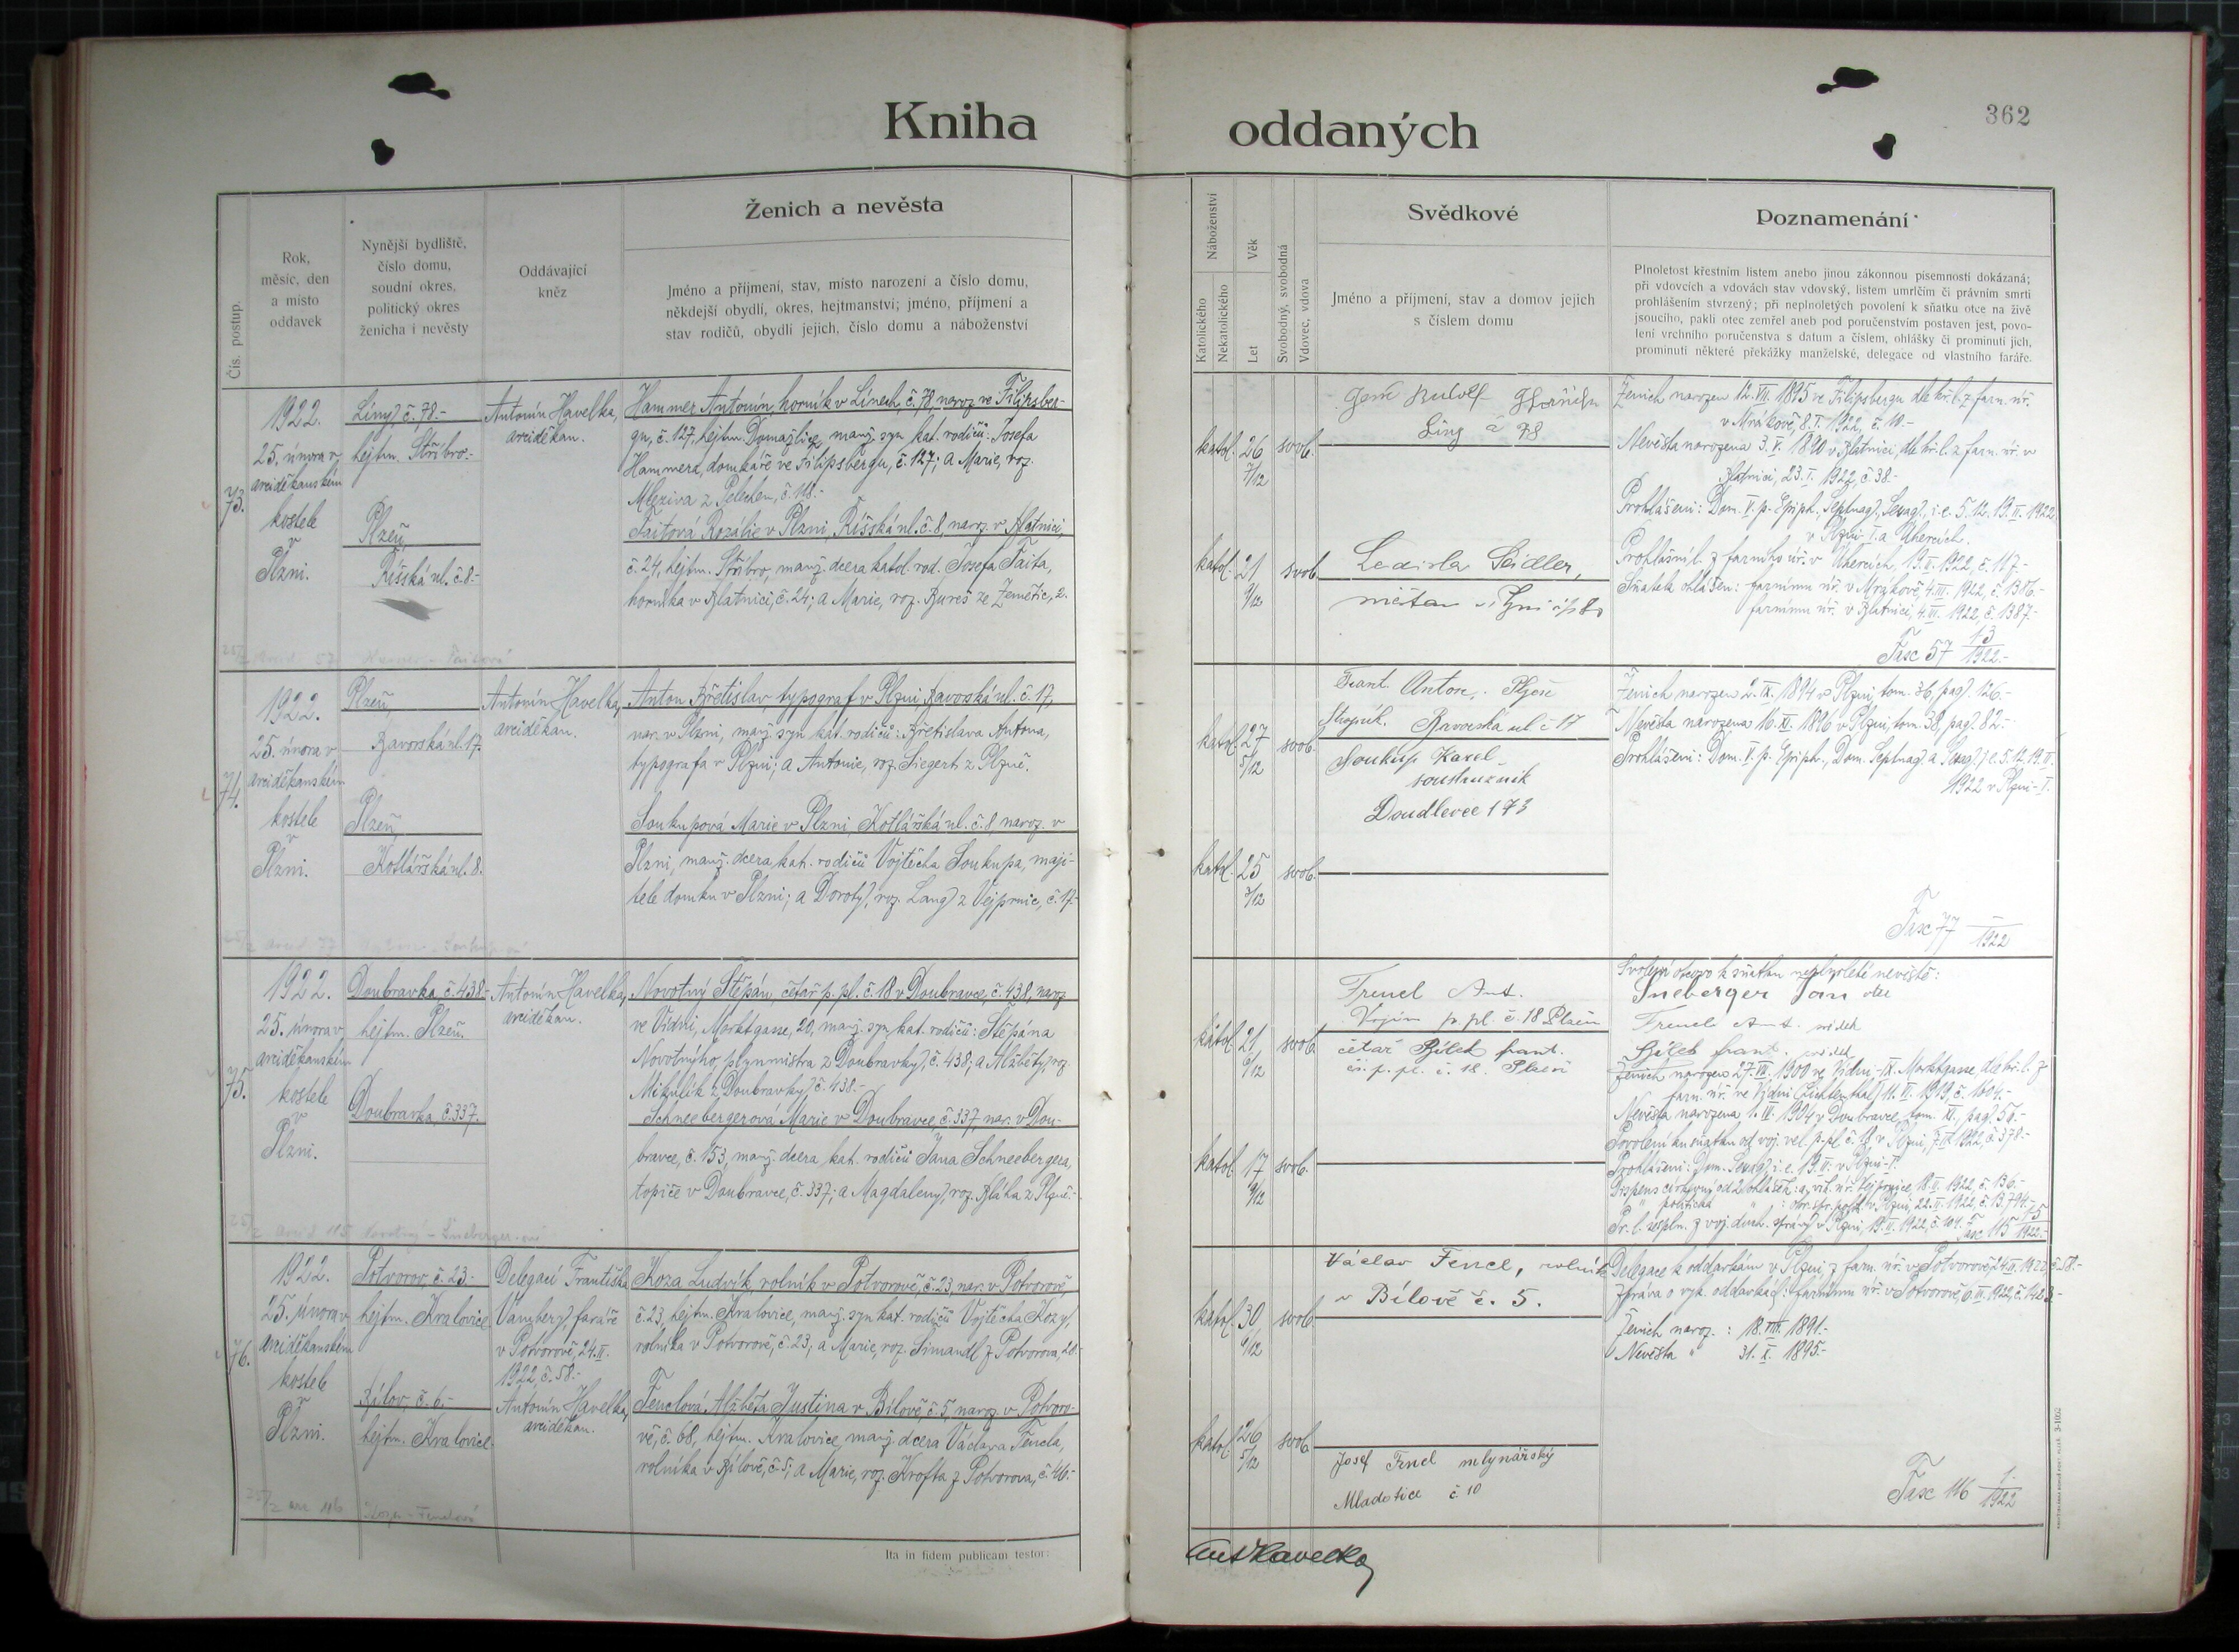 Kniha oddaných
362
Čís. postup.
Rok,
měsíc, den
a místo
oddavek
Nynější bydliště,
číslo domu,
soudní okres,
politický okres
ženicha i nevěsty
Oddávající
kněz
Ženich a nevěsta
Jméno a příjmení, stav, místo narození a číslo domu,
někdejší obydlí, okres, hejtmanství; jméno, příjmení a
stav rodičů, obydlí jejich, číslo domu a náboženství
Náboženství
Katolického
Nekatolického
Věk
Let
Svobodný, svobodná
Vdovec, vdova
Svědkové
Jméno a příjmení, stav a domov jejich
s číslem domu
Poznamenání
Plnoletost křestním listem anebo jinou zákonnou písemností dokázaná;
při vdovcích a vdovách stav vdovský, listem úmrtím či právním smrti
prohlášením stvrzený; při neplnoletých povolení k sňatku otce na živě
jsoucího, pakli otec zemřel aneb pod poručenstvím postaven jest, povo-
lení vrchního poručenstva s datum a číslem, ohlášky či prominutí jich,
prominutí některé překážky manželské, delegace od vlastního faráře.
73.
1922.
25. února v
arciděkanském
kostele
v
Plzni.
Líny, č. 78.-
hejtm. Stříbro.-
Plzeň,
Říšská ul. č. 8.-
Antonín Havelka,
arciděkan.
Hammer Antonín, horník v Línech, č. 78, naroz. ve Filipsber-
gu, č. 127, hejtm. Domažlice, manž. syn kat. rodičů: Josefa
Hammera, domkáře ve Filipsbergu, č. 127; a Marie, roz.
Mleziva z
Taitová Rozálie v Plzni, Říšská ul. č. 8, naroz. v Blatnici,
č. 24, hejtm. Stříbro, manž. dcera katol. rod. Josefa Taita,
horníka v Blatnici, č. 24; a Marie, roz. Bureš ze Zemětic, 2.
katol. 26 7/12 svob.
katol. 21 9/12 svob.
Rudolf
Líny č 78
Ladisla Seidler,
Ženich narozen 12. VII. 1895 ve Filipsbergu dle kř. l. z farn. úř.
v Mrákově, 8. I. 1922, č. 10.-
Nevěsta narozena 3. V. 1900 v Blatnici, dle kř. l. z farn. úř. v
Blatnici, 23. I. 1922, č. 38.-
Prohlášeni: Dom. V. p. Epiph., Septuag., Sexag., i. e. 5. 12. 19. II. 1922
v Plzni-I. a Úhercích.
Prohlášní l. z farního úř. v Úhercích, 19. II. 1922, č. 117.-
Sňatek ohlášen: farnímu úř. v Mrákově, 4. III. 1922, č. 1386.-
farnímu úř. v Blatnici, 4. III. 1922, č. 1387.-
Fasc 57 13/1922.-
74.
1922.
25. února v
arciděkanském
kostele
v
Plzni.
Plzeň,
Bavorská ul. 17.
Plzeň,
Kotlářská ul. 8.
Antonín Havelka,
arciděkan.
Anton Břetislav, typograf v Plzni, Bavorská ul. č. 17,
nar. v Plzni, manž. syn kat. rodičů: Břetislava Antona,
typografa v Plzni; a Antonie, roz. Siegert z Plzně.
Soukupová Marie v Plzni, Kotlářská ul. č. 8, naroz. v
Plzni, manž. dcera kat. rodičů Vojtěcha Soukupa, maji-
tele domku v Plzni; a Doroty, roz. Lang z Vejprnic, č. 17.-
katol. 27 5/12 svob.
katol. 25 3/12 svob.
Frant. Anton, Plzeň
Strojník. Bavorská ul č 17
Soukup Karel
soustružník
Doudlevce 173
Ženich narozen 2. IX. 1894 v Plzni, tom. 36, pag. 126.-
Nevěsta narozena 10. XI. 1896 v Plzni, tom. 38, pag. 82.-
Prohlášeni: Dom. V. p. Epiph., Dom. Septuag. a Sexag. i. e. 5. 12. 19. II.
1922 v Plzni-I.
Fasc 77 -/1922
75.
1922.
25. února v
arciděkanském
kostele
v
Plzni.
Doubravka, č. 438.-
hejtm. Plzeň.
Doubravka, č. 337.
Antonín Havelka,
arciděkan.
Novotný Štěpán, četař p. pl. č. 18 v Doubravce, č. 438, naroz.
ve Vídni, Marktgasse, 20, manž. syn kat. rodičů: Štěpána
Novotného, plynmistra z Doubravky, č. 438; a Alžběty, roz.
Mikulík z Doubravky, č. 438.-
Schneebergerová Marie v Doubravce, č. 337, nar. v Dou-
bravce, č. 153, manž. dcera kat. rodičů Jana Schneebergera,
topiče v Doubravce, č. 337; a Magdaleny, roz. Bláha z Plzně.-
katol. 21 6/12 svob.
katol. 17 9/12 svob.
Frencl Ant.
Vojín p. pl. č. 18 Plzeň
četař Bílek frant.
čs. p. pl. č. 18. Plzeň
Svolení otcovo k sňatku neplnoleté nevěstě:
Šneberger Jan otec
Frencl Ant. svědek
Bílek frant. svědek
Ženich narozen 27. VII. 1900 ve Vídni-IX. Marktgasse, dle kř. l. z
farn. úř. ve Vídni (Lichtenthal) 11. VI. 1919, č. 1604.-
Nevěsta narozena 1. IV. 1904 v Doubravce, tom. XI., pag. 50.-
Povolení ku sňatku od voj. vel. p. pl. č. 18 v Plzni, 7. II. 1922, č. 378.-
Prohlášeni: Dom. Sexag. i. e. 19. II. v Plzni-I.
Dispens církevní od 2 ohlášek: a. vik. úř. Vejprnice, 18. II. 1922, č. 136.-
" politická " : okr. spr. polit. v Plzni, 22. II. 1922, č. 13.794.-
z voj. duch. správy v Plzni, 19. II. 1922, č. 104. Fasc 115 15/1922.-
76.
1922.
25. února v
arciděkanském
kostele
v
Plzni.
Potvorov, č. 23.-
hejtm. Kralovice
Bílov, č. 6.-
hejtm. Kralovice.
Delegací Františka
Vambery, faráře
v Potvorově, 24. II.
1922, č. 58.-
Antonín Havelka,
arciděkan.
Koza Ludvík, rolník v Potvorově, č. 23, nar. v Potvorově,
č. 23, hejtm. Kralovice, manž. syn kat. rodičů Vojtěcha Kozy,
rolníka v Potvorově, č. 23; a Marie, roz. Šimandl z Potvorova, 28.-
Fenclová Alžběta Justina v Bílově, č. 5, naroz. v Potvoro-
vě, č. 68, hejtm. Kralovice, manž. dcera Václava Fencla,
rolníka v Bílově, č. 5; a Marie, roz. Krofta z Potvorova, č. 46.-
katol. 30 6/12 svob.
katol. 26 5/12 svob.
Václav Fencl, rolník
v Bílově č. 5.
Josef Fencl mlynářský
Mladotice č. 10
Delegace k oddavkám v Plzni z farn. úř. v Potvorově, 24. II. 1922, č. 58.-
Zpráva o vyk. oddavkách: farnímu úř. v Potvorově, 6. III. 1922, č. 1423.-
Ženich naroz.: 18. VIII. 1891.-
Nevěsta " 31. X. 1895.-
Fasc 116 1/1922
Ita in fidem publicam testor:
Ant Havelka